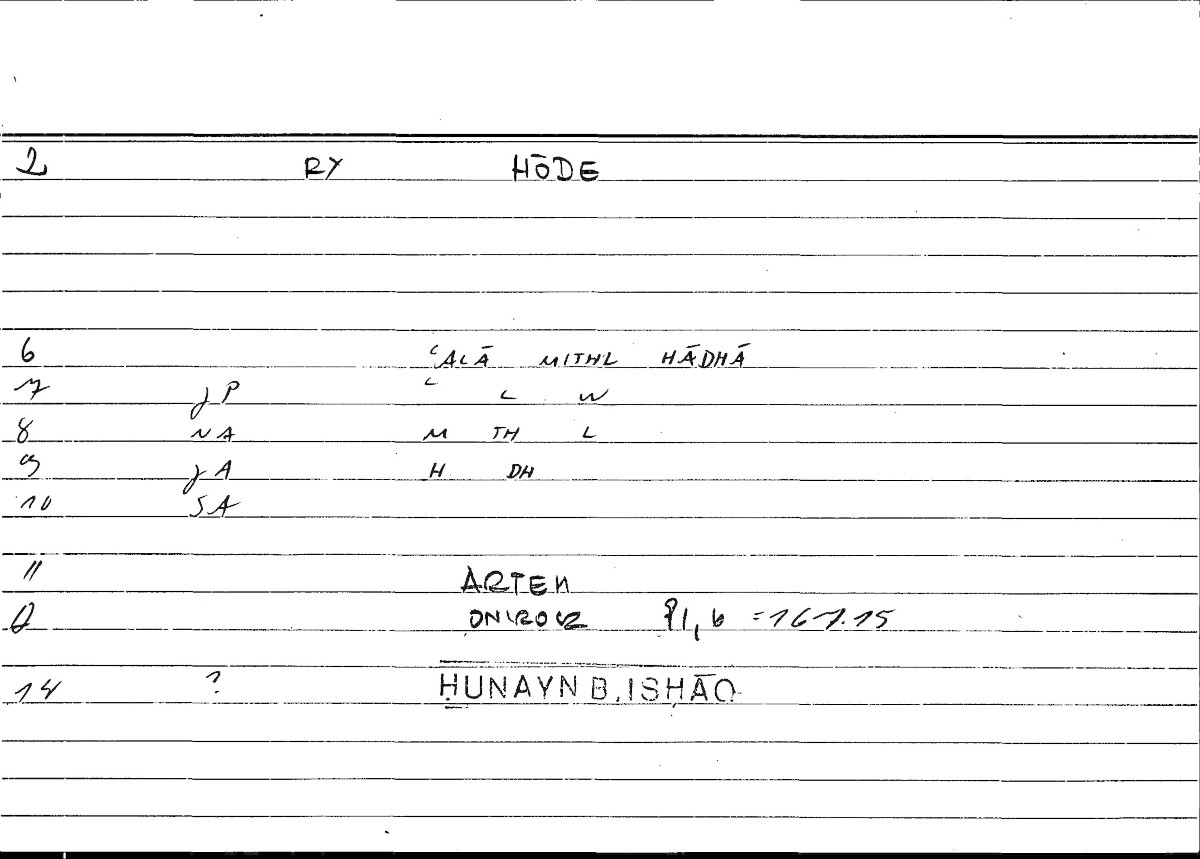 2 RY HŌDE
6 ʿALĀ MITHL HĀDHĀ
7 JP ʿ L W
8 NA M TH L
9 JA H DH
10 SA
11 ARTEM
ONIROCR 1, 6 = 167.15
14 ? ḤUNAYN B. ISḤĀQ